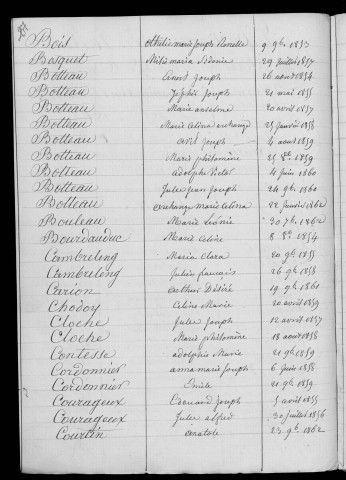 Bois Athilie marie Joseph Ronelle 9 9bre 1853
Bosquet Mélie maria Sidonie 29 Juillet 1857
Botteau Cénort Joseph 26 aout 1854
Botteau Joseph 21 mai 1855
Botteau Maria anselme 20 avril 1857
Botteau Marie Célina archange 25 Janvier 1858
Botteau Joseph 4 aout 1859
Botteau Marie philomène 25 8bre 1859
Botteau adolphe 4 Juin 1860
Botteau Jules jean Joseph 24 9bre 1860
Botteau archange Marie Célina 22 Janvier 1862
Bouleau Marie Léonie 30 7bre 1862
Bourdauduc Marie Celine 8 8bre 1854
Cambreling Maria Clara 20 9bre 1855
Cambreling Julien francois 26 9bre 1858
Carion Arthur Désiré 19 9bre 1861
Chodoy Celine Marie 20 avril 1859
Cloche Jules Joseph 12 avril 1857
Cloche Marie philomène 18 aout 1858
Contesse adolphin Marie 21 9bre 1859
Cordonnier anna marie Joseph 6 Juin 1858
Cordonnier Emile 21 9bre 1859
Courageux Edouard Joseph 5 avril 1855
Courageux Jules alfred 30 Juillet 1856
Courtin Anatole 23 9bre 1862